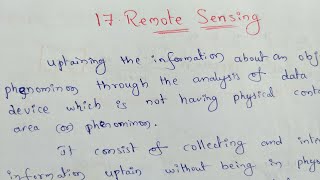 17. Remote Sensing
uptaining the information about an obj
phenominon through the analysis of data
device which is not having physical conta
area (or) phenominon.
It consist of collecting and inte
information uptain without being in phys